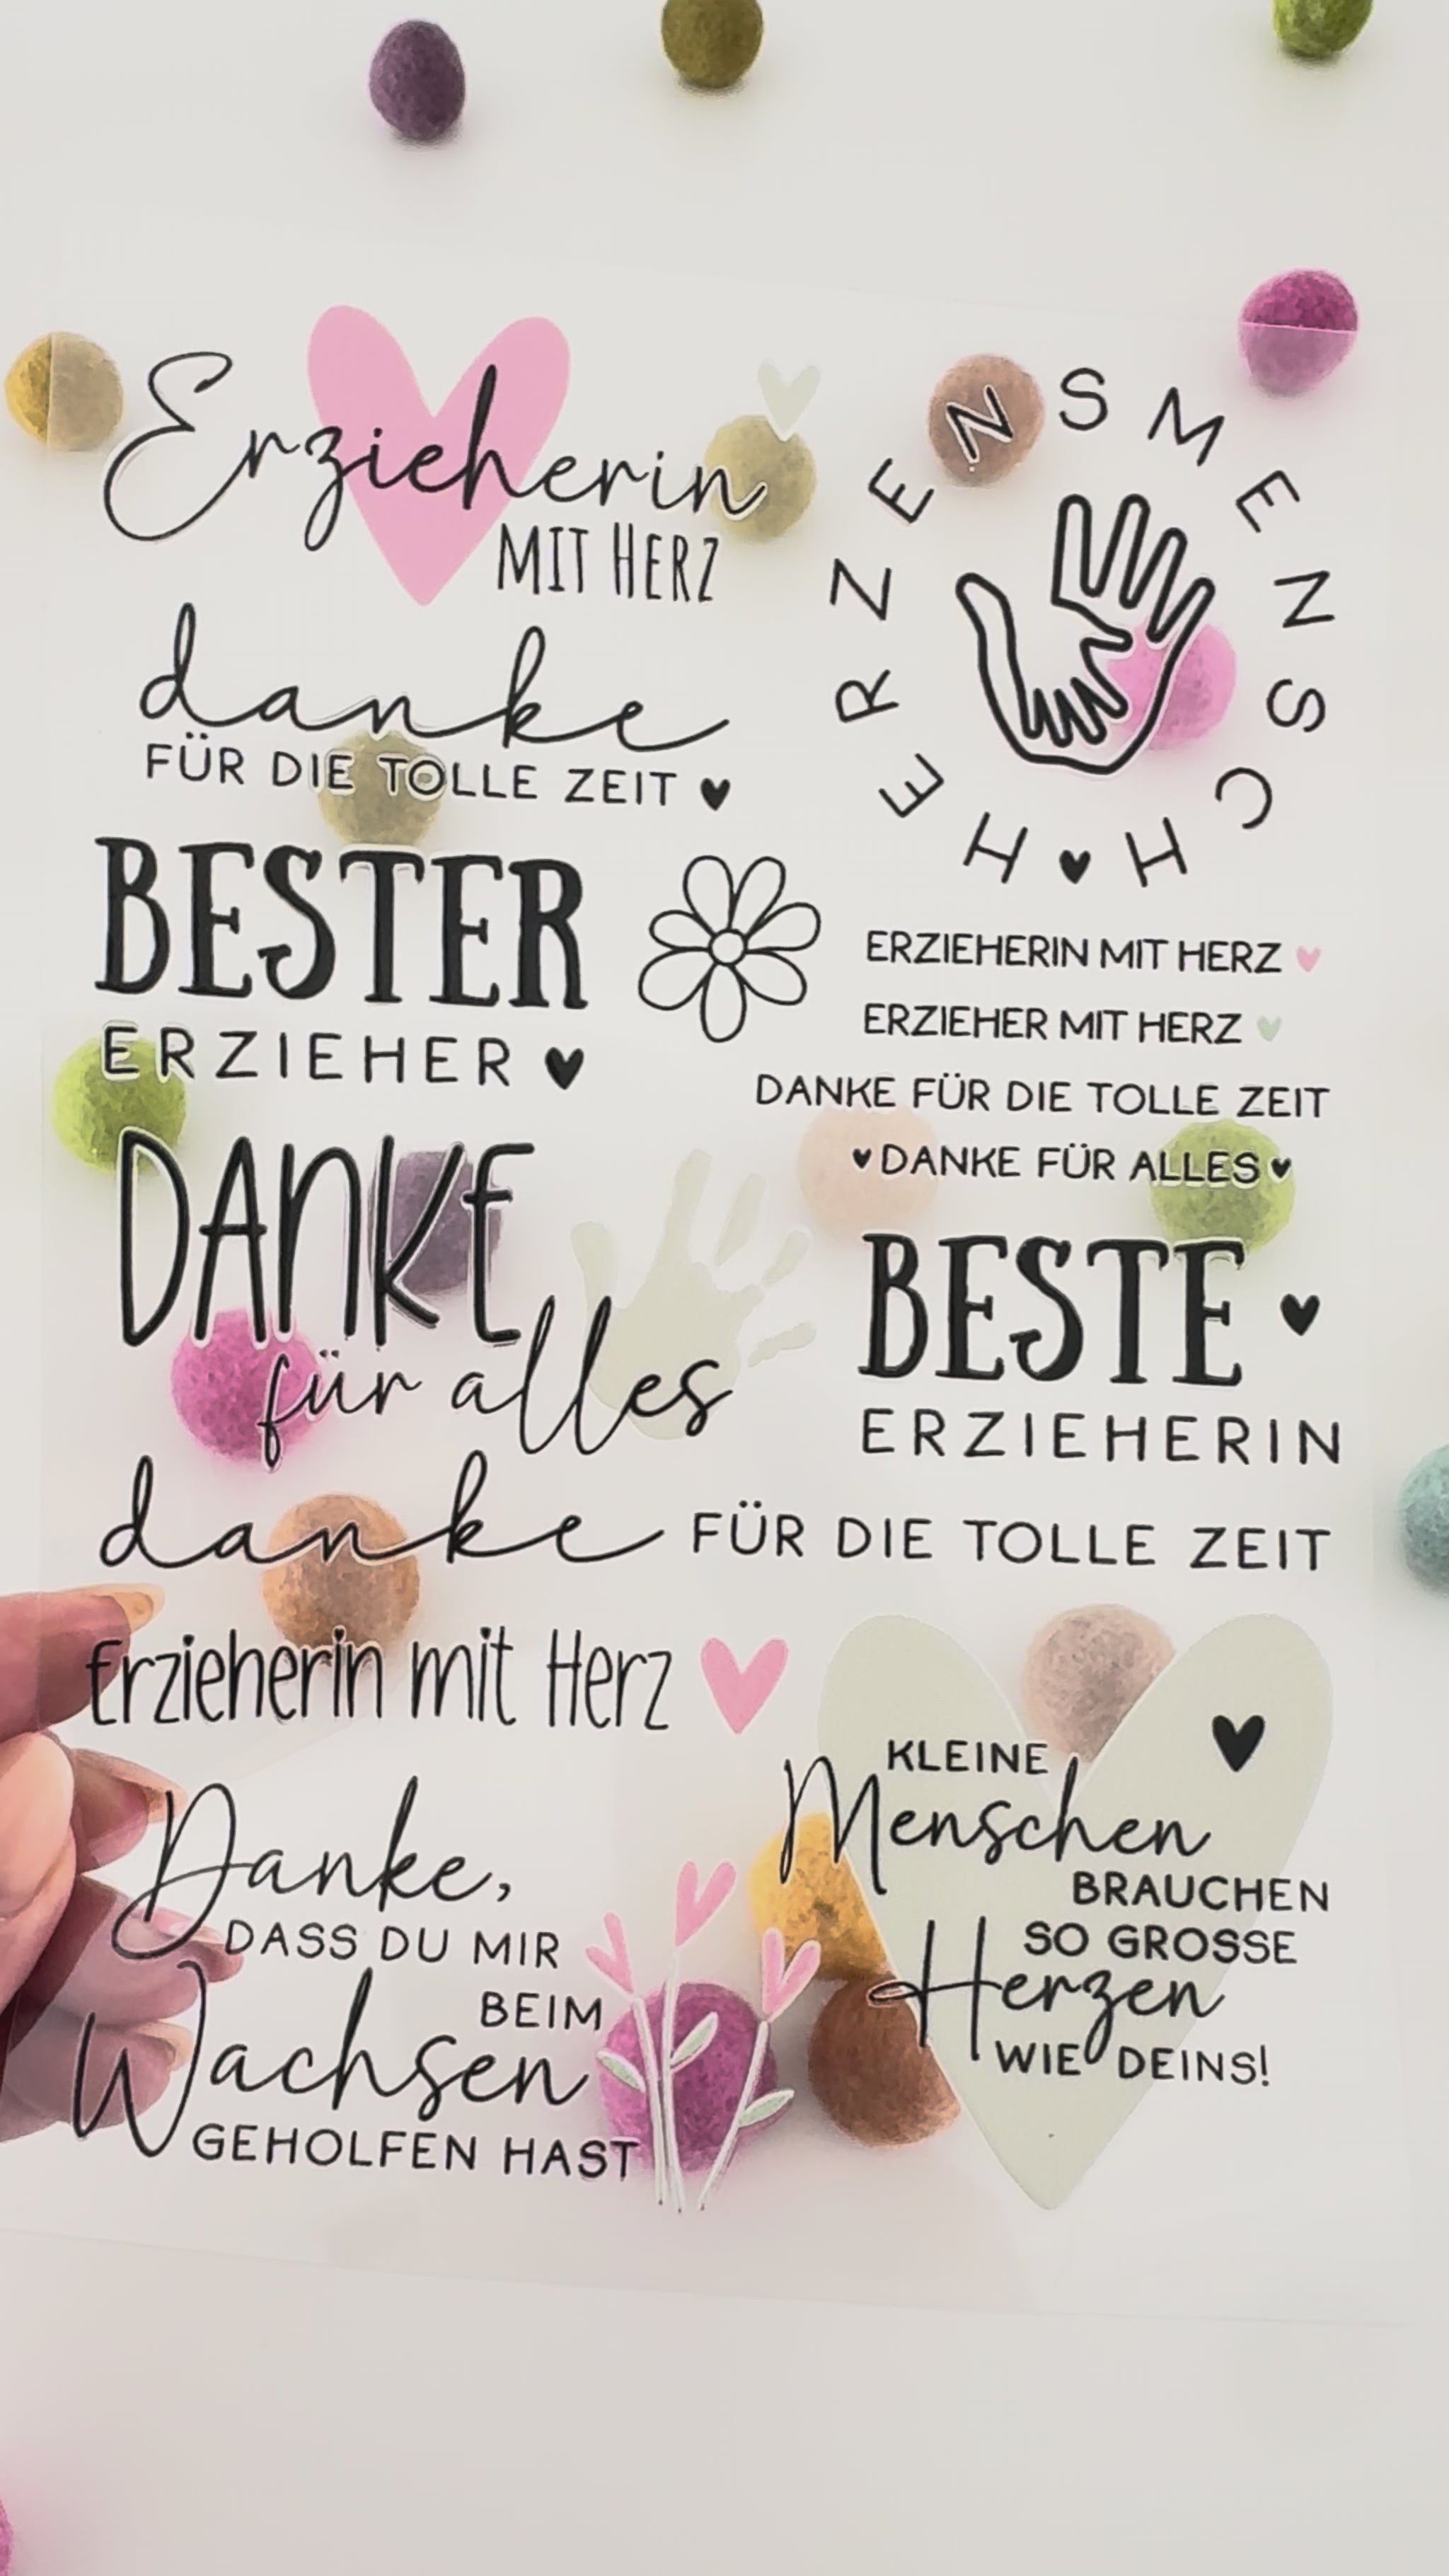 Erzieherin
MIT HERZ
HERZENSMENSCH
danke
FÜR DIE TOLLE ZEIT
BESTER
ERZIEHER
ERZIEHERIN MIT HERZ
ERZIEHER MIT HERZ
DANKE FÜR DIE TOLLE ZEIT
DANKE FÜR ALLES
DANKE
für alles
BESTE
ERZIEHERIN
danke FÜR DIE TOLLE ZEIT
Erzieherin mit Herz
Danke,
DASS DU MIR
BEIM
Wachsen
GEHOLFEN HAST
KLEINE
Menschen
BRAUCHEN
SO GROSSE
Herzen
WIE DEINS!